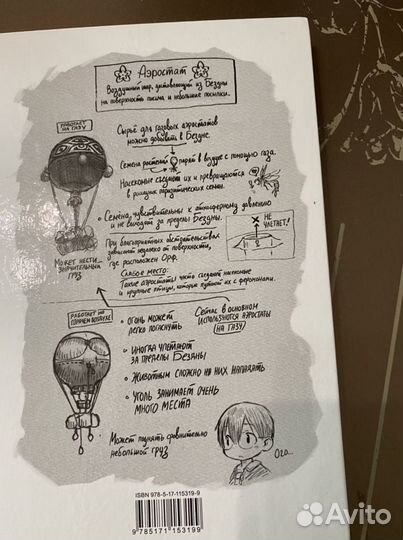 Аэростат
Воздушный шар, доставляющий из Бездны
на поверхность письма и небольшие посылки.
РАБОТАЕТ
НА ГАЗУ
Сырьё для газовых аэростатов
можно добывать в Бездне.
Семена растений парят в воздухе с помощью газа.
Насекомые съедают их и превращаются
в разносчиков паразитических семян.
Семена чувствительны к атмосферному давлению
и не выходят за пределы Бездны.
НЕ
УЛЕТАЕТ!
При благоприятных обстоятельствах
зависают недалеко от поверхности,
где расположен Орф.
МОЖЕТ НЕСТИ
ЗНАЧИТЕЛЬНЫЙ
ГРУЗ
СЛАБОЕ МЕСТО:
Такие аэростаты часто съедают насекомые
и крупные птицы, которые путают их с феромонами.
РАБОТАЕТ НА
ГОРЯЧЕМ ВОЗДУХЕ
• ОГОНЬ МОЖЕТ
ЛЕГКО ПОГАСНУТЬ
Сейчас в основном
используются аэростаты
НА ГАЗУ
• ИНОГДА УЛЕТАЮТ
ЗА ПРЕДЕЛЫ БЕЗДНЫ
• ЖИВОТНЫМ СЛОЖНО НА НИХ НАПАДАТЬ
• УГОЛЬ ЗАНИМАЕТ ОЧЕНЬ
МНОГО МЕСТА
Может поднять сравнительно
небольшой груз
Ого...
ISBN 978-5-17-115319-9
9 785171 153199
Avito